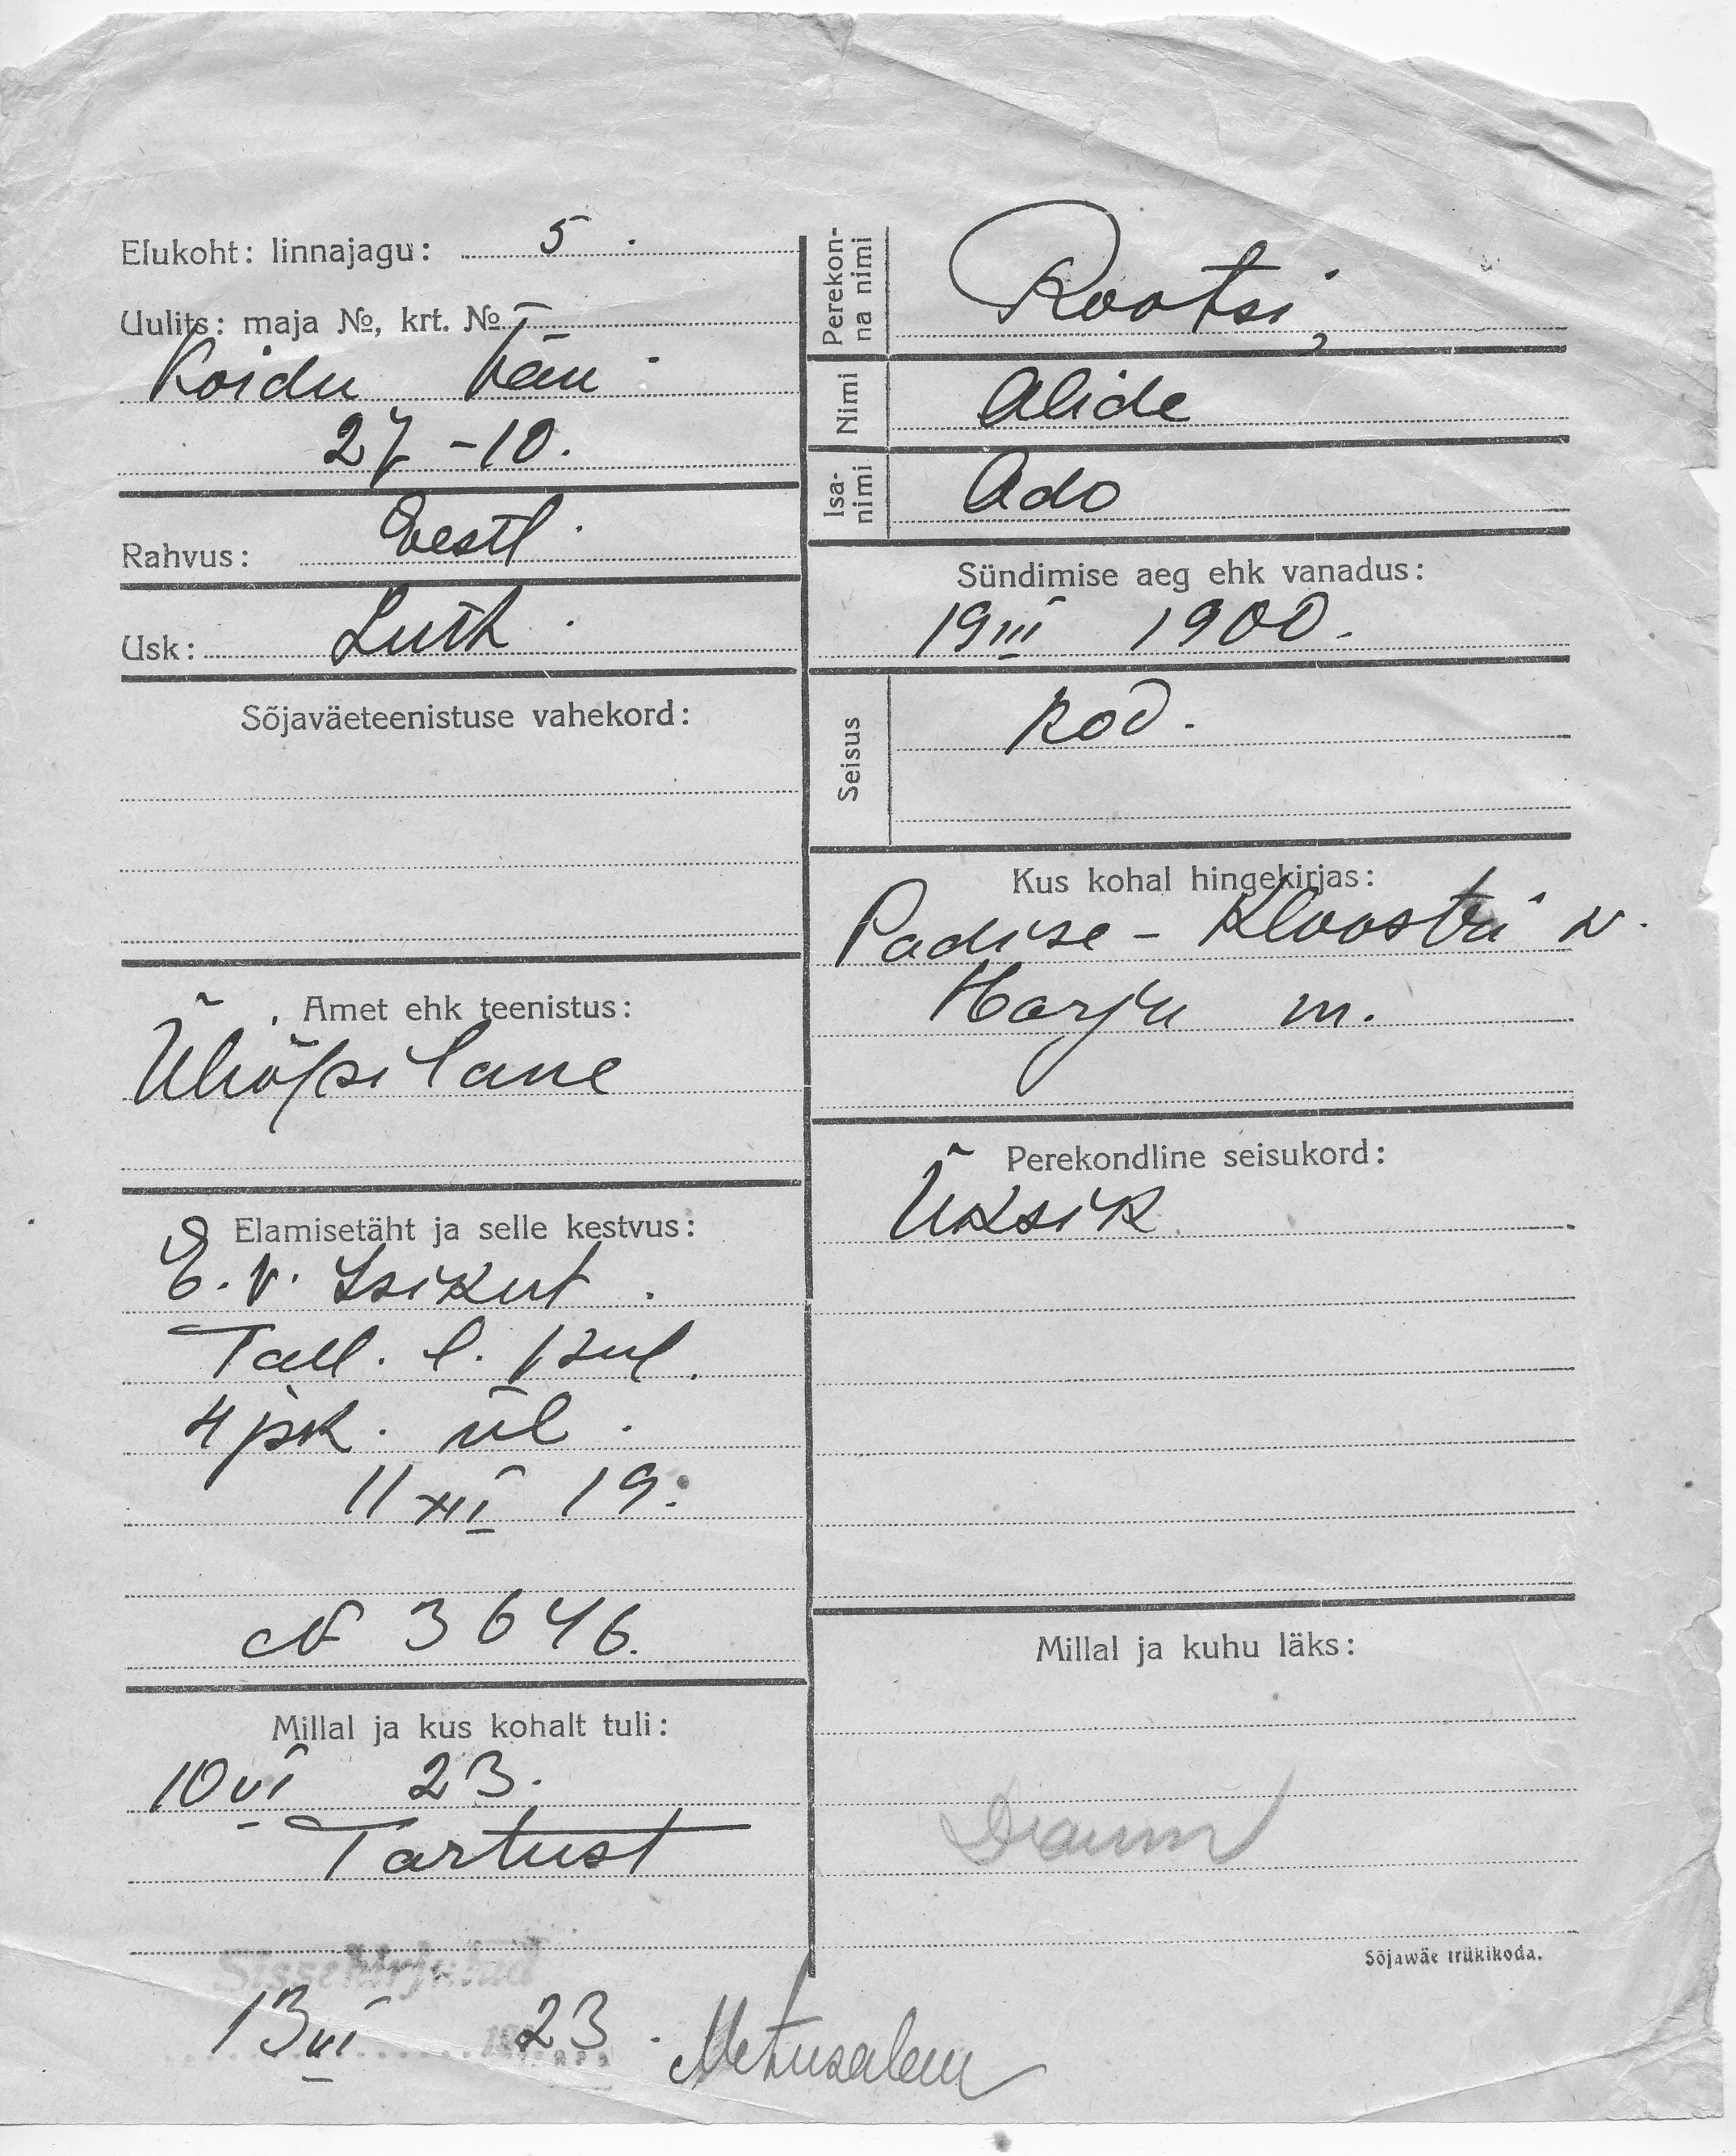 Elukoht: linnajagu: 5.
Uulits: maja №, krt. №
Koidu tän.
27-10.
Rahvus: Eestl.
Usk: Luth.
Sõjaväeteenistuse vahekord:
Amet ehk teenistus:
Üliõpilane
Elamisetäht ja selle kestvus:
E.V. Isikut.
Tall. l.
4 jsk. ül.
11 XII 19.
№ 3646.
Millal ja kus kohalt tuli:
10 VI 23.
Tartust
Sissekirjutud
13 VI 1923.
Perekon-
na nimi
Rootsi,
Nimi
Alide
Isa-
nimi
Ado
Sündimise aeg ehk vanadus:
19 III 1900.
Seisus
kod.
Kus kohal hingekirjas:
Padise-Kloostri v.
Harju m.
Perekondline seisukord:
Üksik
Millal ja kuhu läks:
Sõjawäe trükikoda.
Metusalem